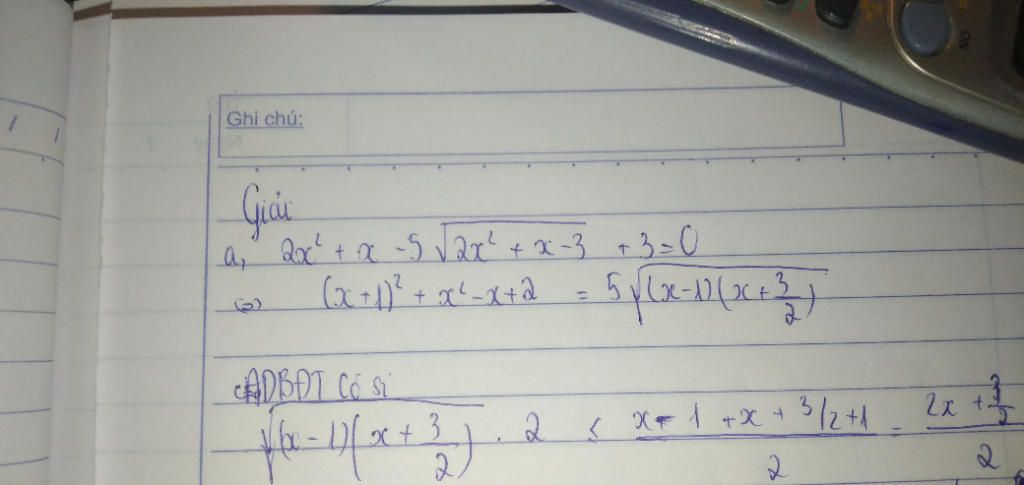 Ghi chú:
Giải
a, 2x² + x - 5√(2x² + x - 3) + 3 = 0
⇔ (x+1)² + x² - x + 2 = 5√((x-1)(x+3/2))
ADBĐT Cô si
√((x-1)(x+3/2)) . 2 ≤ (x - 1 + x + 3/2 + 1)/2 = (2x + 3/2)/2